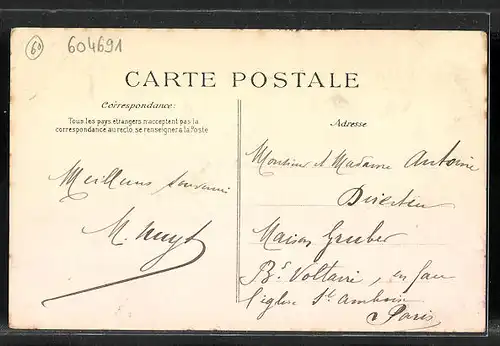 60
604691
CARTE POSTALE
Correspondance:
Tous les pays étrangers n'acceptent pas la
correspondance au recto, se renseigner à la Poste
Adresse
Meilleurs souvenirs
M.
Monsieur et Madame Antoine
Directeur
Maison Gruber
Bd Voltaire, en face
l'église St Ambroise
Paris